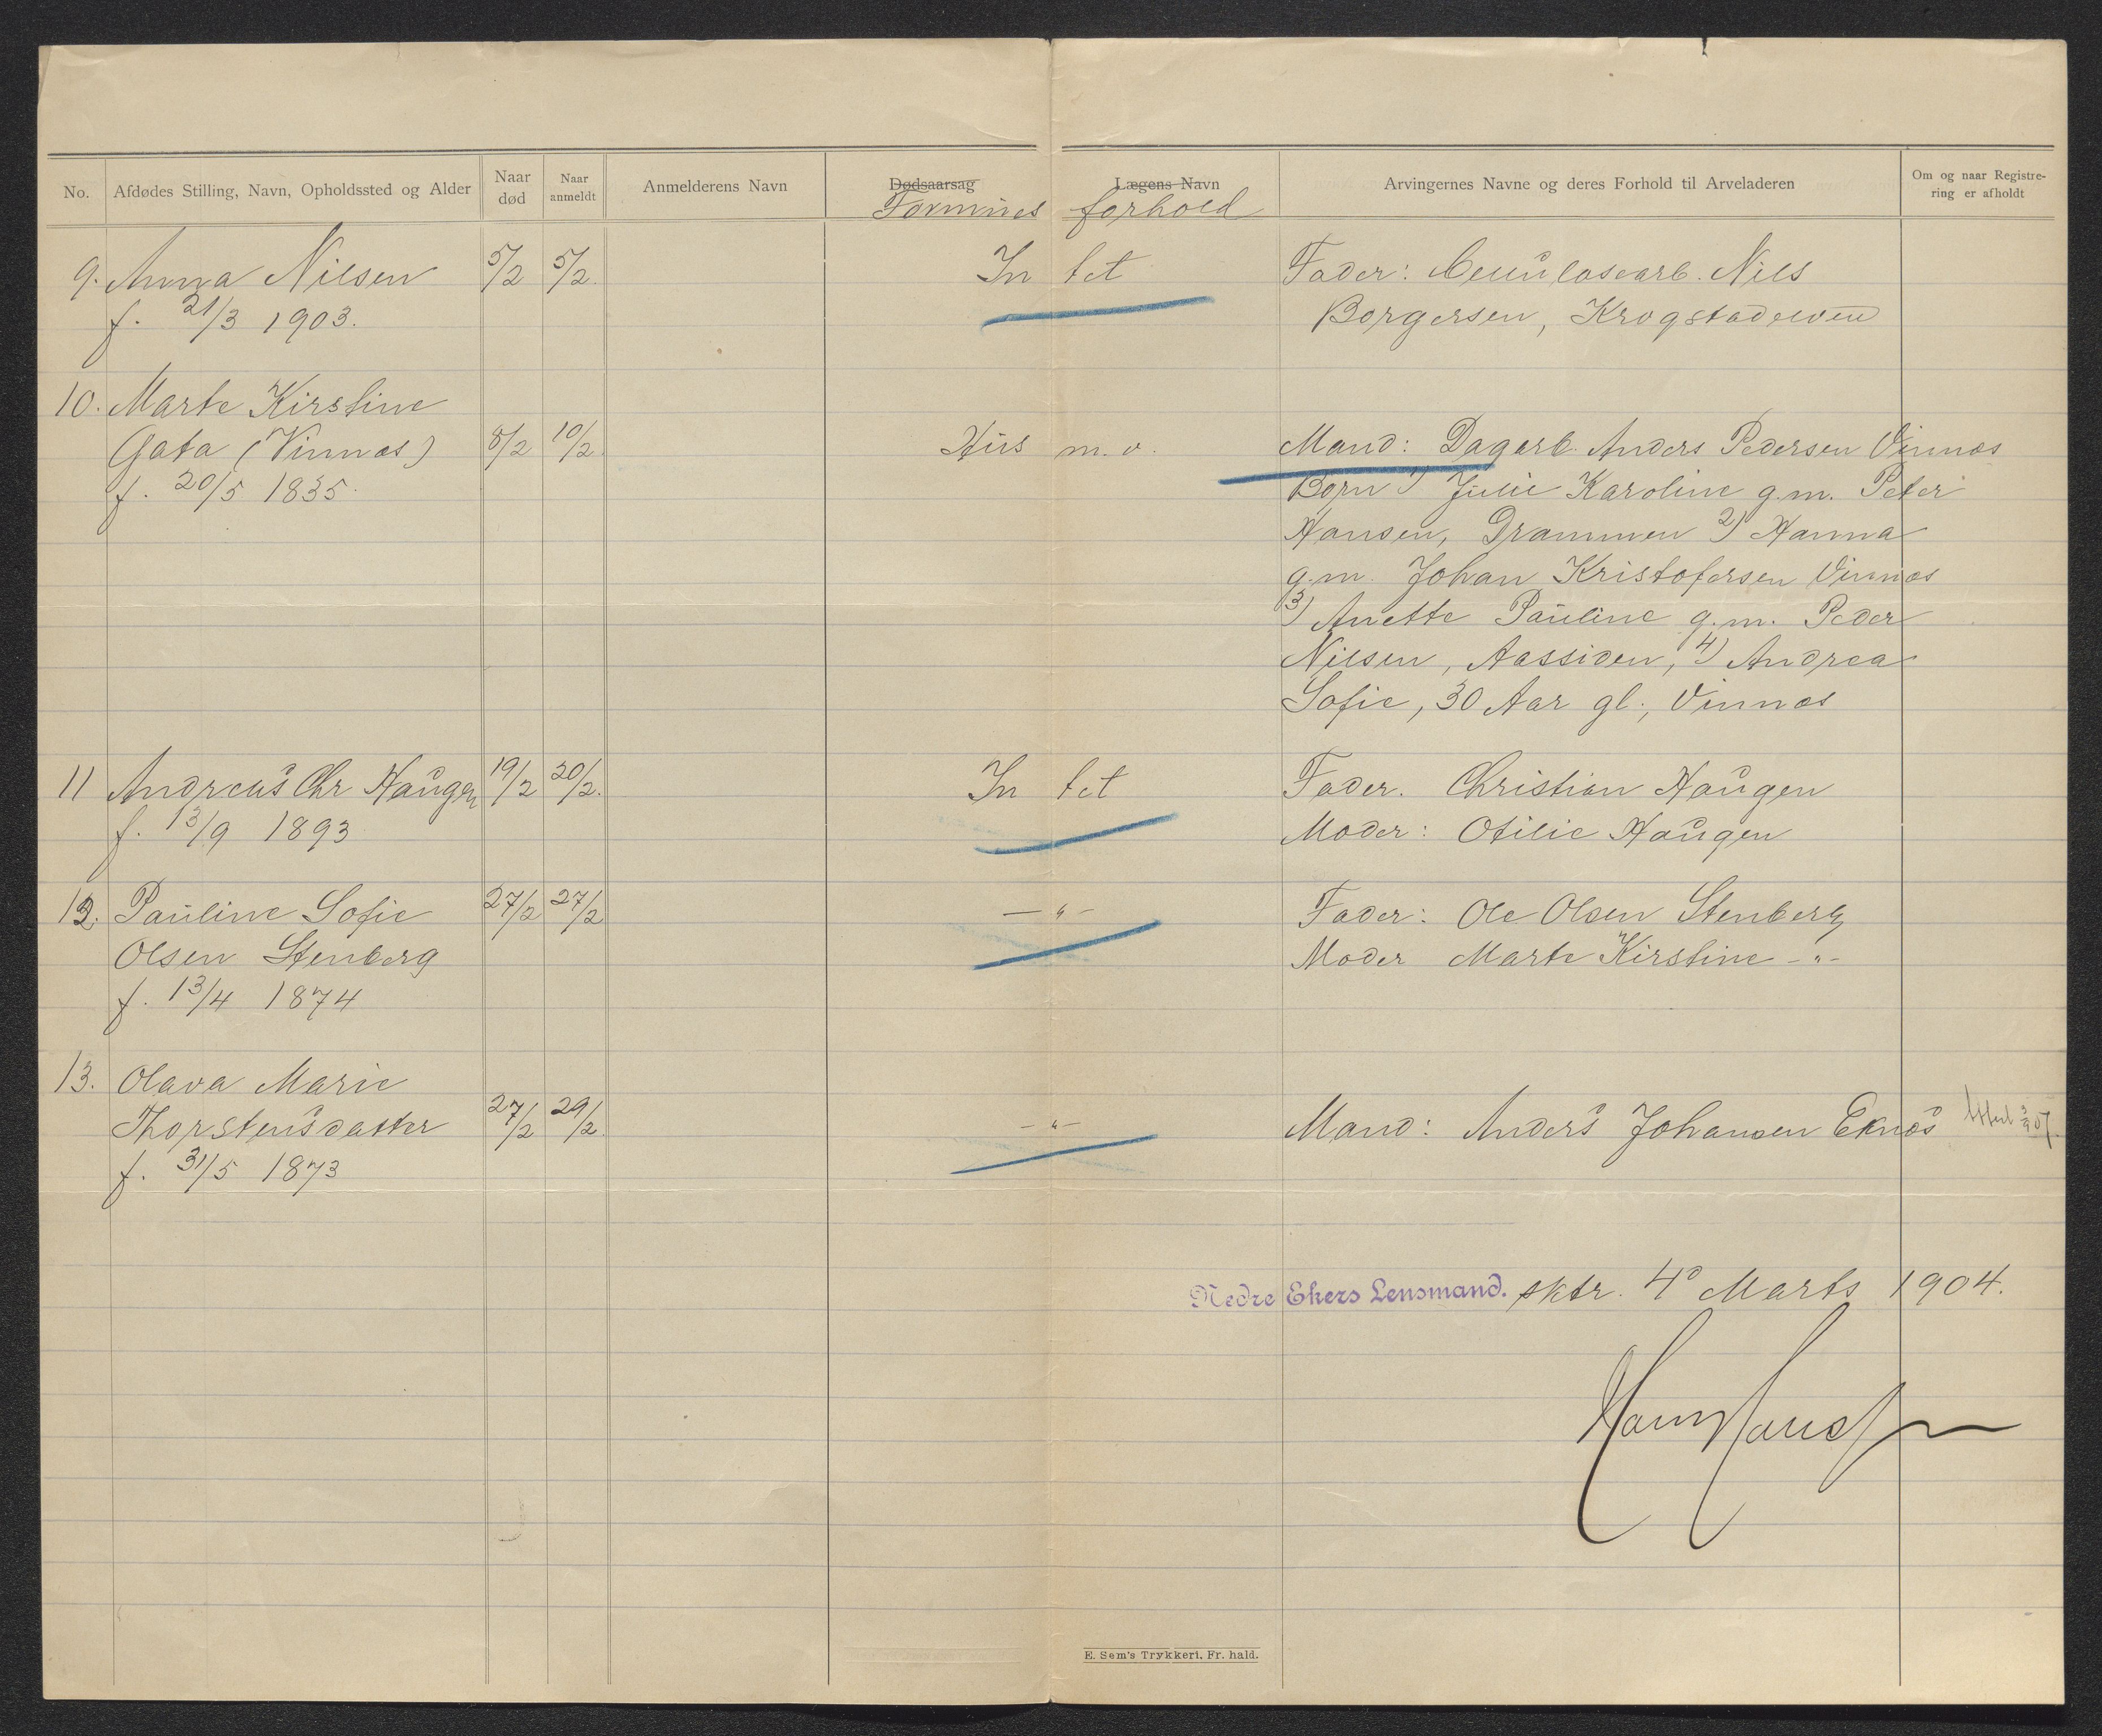 No. Afdødes Stilling, Navn, Opholdssted og Alder Naar død Naar anmeldt Anmelderens Navn Dødsaarsag Lægens Navn Arvingernes Navne og deres Forhold til Arveladeren Om og naar Registre-ring er afholdt
Formues forhold
9. Anna Nilsen 5/2 5/2. Intet Fader: Celluloscarb. Nils
f. 21/3 1903. Borgersen, Krogstadelven
10. Marte Kirstine
Gata (Vinnæs) 8/2 10/2 Hus m.v. Mand: Dagarb. Anders Pedersen Vinnæs
f. 20/5 1835. Børn 1) Julie Karoline g.m. Peter
Hansen, Drammen 2) Hanna
g.m. Johan Kristofersen Vinnæs
3) Anette Pauline g.m. Peder
Nilsen, Aassiden, 4) Andrea
Sofie, 30 Aar gl., Vinnæs
11 Andreas Chr Haugen 19/2 20/2. Intet Fader. Christian Haugen
f. 13/9 1893 Moder: Otilie Haugen
12. Pauline Sofie 27/2 27/2 — " — Fader: Ole Olsen Stenberg
Olsen Stenberg Moder Marte Kirstine - " -
f. 13/4 1874
13. Olava Marie
Thorstensdatter 27/2 29/2 - " - Mand: Anders Johansen Eknæs
f. 31/5 1873
Nedre Ekers Lensmand. sktr. 4d Marts 1904.
E. Sem's Trykkeri, Fr. hald.